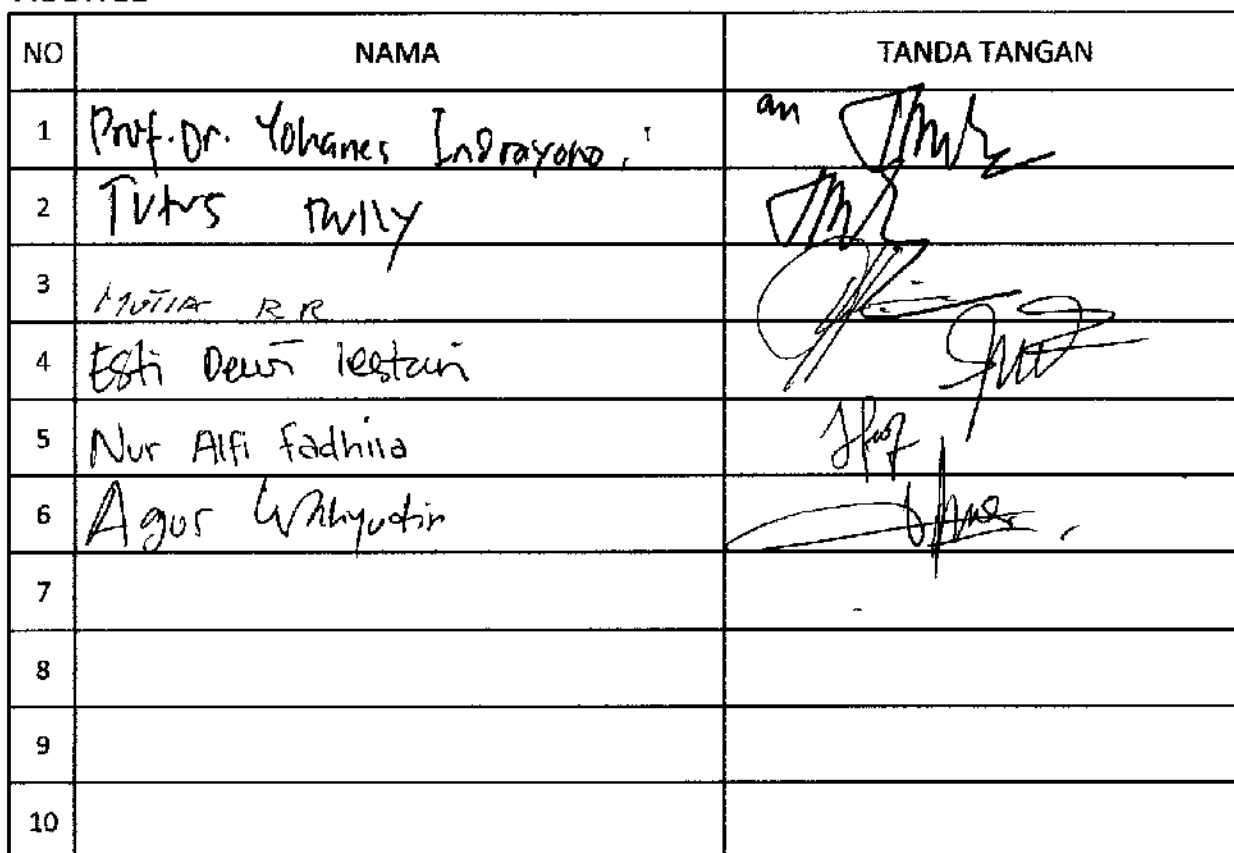 NO NAMA TANDA TANGAN
1 Prof. Dr. Yohanes Indrayono. an
2 Tutus Rully
3 MUTIA R R
4 Esti Dewi Lestari
5 Nur Alfi fadhila
6 Agus Wahyudin
7
8
9
10